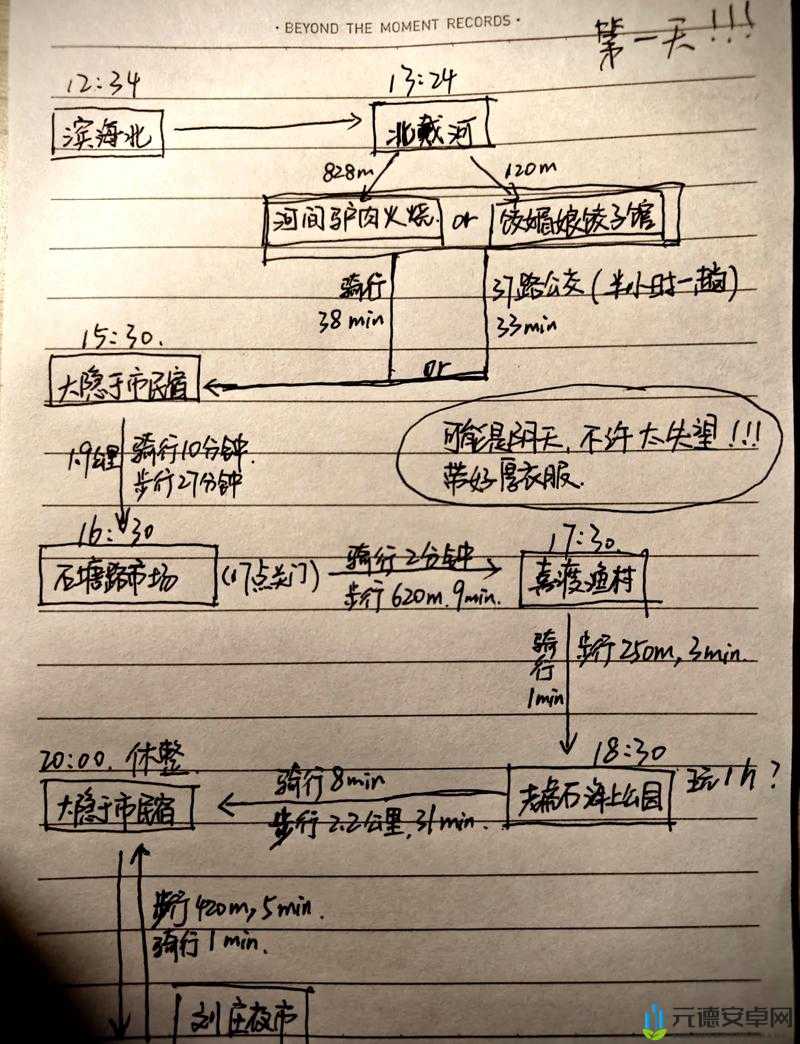 · BEYOND THE MOMENT RECORDS ·
第一天!!!
12:34
13:24
滨海北
北戴河
828m
120m
河间驴肉火烧 or 饺媚娘饺子馆
骑行
38min
37路公交(半小时一趟)
33min
15:30.
or
大隐于市民宿
可能是阴天,不许太失望!!!
带好厚衣服.
1.9公里
骑行10分钟.
步行27分钟
16:30
17:30.
石塘路市场
(17点关门)
骑行2分钟
步行620m.9min.
喜渡渔村
骑行
1min
步行250m,3min.
20:00.休整.
18:30
大隐于市民宿
骑行8min
步行2.2公里,31min.
老虎石海上公园
玩1h?
步行420m,5min.
骑行1min.
刘庄夜市
元德安卓网